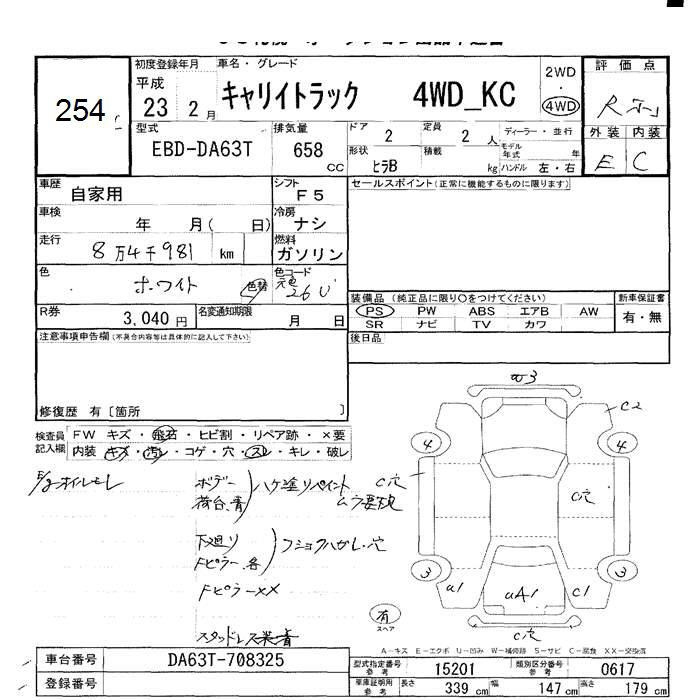 254
初度登録年月
平成
23 2月
車名・グレード
キャリイトラック 4WD_KC
2WD
・
4WD
評価点
R
外装 内装
E C
型式
EBD-DA63T
排気量
658 cc
ドア 2
定員 2人
形状 ヒラB
積載 kg
ディーラー・並行
モデル年式 年
ハンドル 左・右
車歴 自家用
シフト F5
セールスポイント(正常に機能するものに限ります)
車検 年 月( 日)
冷房 ナシ
走行 8万4千981 km
燃料 ガソリン
色 ホワイト 色替
色コード 元色 26U
R券 3,040円
名変通知期限 月 日
装備品(純正品に限り○をつけてください)
PS PW ABS エアB AW
SR ナビ TV カワ
新車保証書
有・無
注意事項申告欄(不具合内容等は具体的に記入して下さい)
後日品
修復歴 有〔箇所 〕
検査員記入欄
FW キズ・飛石・ヒビ割・リペア跡・×要
内装 キズ・汚レ・コゲ・穴・スレ・キレ・破レ
E/gオイルモレ
ボデー
荷台.青
ハケ塗リペイント
ムラ要確
下廻リ
Fピラー.各
フショクハガレ.穴
FピラーXX
スタッドレス装着
W3
C2
4 4
C穴
C穴
3 3
a1 uA1 C1
C穴
有
スペア
A-キズ E-エクボ U-凹み W-補修跡 S-サビ C-腐食 XX-交換済
車台番号 DA63T-708325
登録番号
型式指定番号 参考 15201
類別区分番号 参考 0617
車庫証明用 参考 長さ 339cm 幅 147cm 高さ 179cm